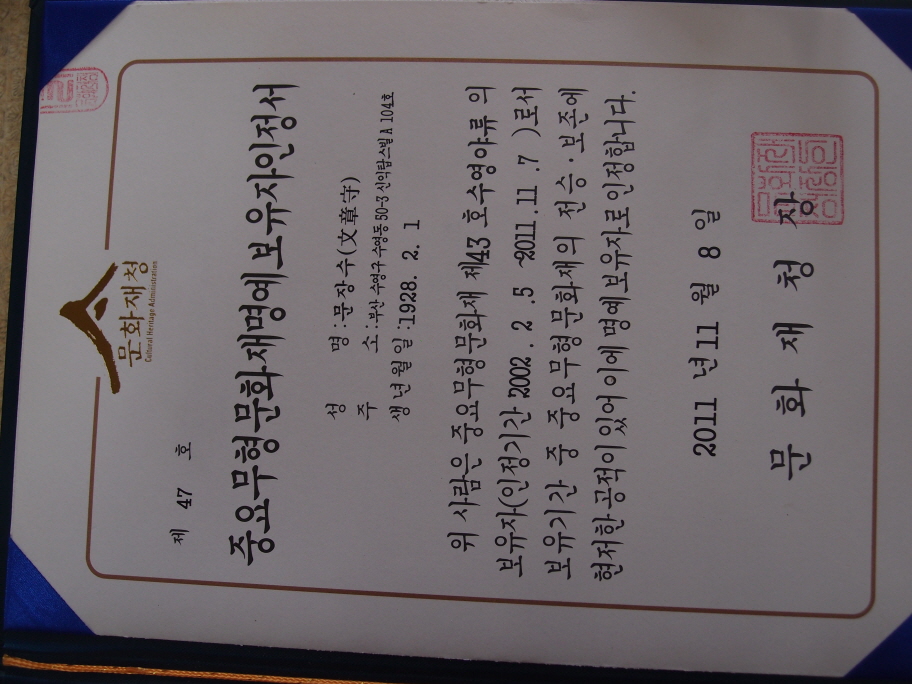 문화재청
Cultural Heritage Administration
제 47 호
중요무형문화재명예보유자인정서
성 명 : 문장수(文章守)
주 소 : 부산 수영구 수영동 50-3 신익탑스빌 A 104호
생년월일 : 1928. 2. 1
위 사람은 중요무형문화재 제43 호수영야류 의
보유자(인정기간 2002. 2 .5 ~2011. 11 .7 )로서
보유기간 중 중요무형문화재의 전승·보존에
현저한 공적이 있어 이에 명예보유자로 인정합니다.
2011 년 11 월 8 일
문 화 재 청 장